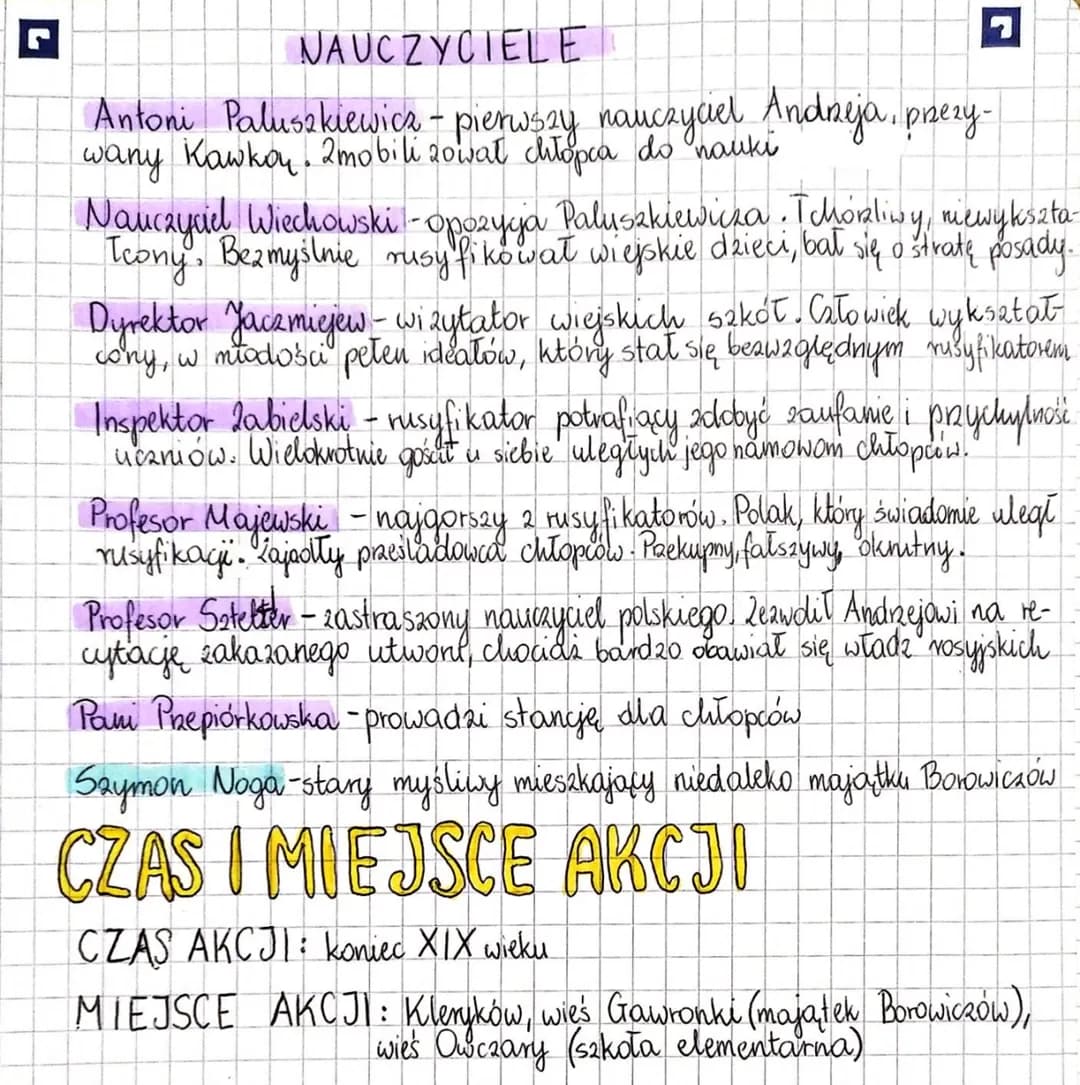 NAUCZYCIELE
Antoni Paluszkiewicz - pierwszy nauczyciel Andrzeja, przezy-
wany Kawką. Zmobilizował chłopca do nauki
Nauczyciel Wiechowski - opozycja Paluszkiewicza. Tchórzliwy, niewykszta-
łcony. Bezmyślnie rusyfikował wiejskie dzieci, bał się o stratę posady.
Dyrektor Jaczmiejew - wizytator wiejskich szkół. Człowiek wykształ-
cony, w młodości pełen ideałów, który stał się bezwzględnym rusyfikatorem
Inspektor Zabielski - rusyfikator potrafiący zdobyć zaufanie i przychylność
uczniów. Wielokrotnie gościł u siebie uległych jego namowom chłopców.
Profesor Majewski - najgorszy z rusyfikatorów. Polak, który świadomie uległ
rusyfikacji. Zajadły prześladowca chłopców. Przekupny, fałszywy, okrutny.
Profesor Sztetter - zastraszony nauczyciel polskiego. Zezwolił Andrzejowi na re-
cytację zakazanego utworu, chociaż bardzo obawiał się władz rosyjskich
Pani Przepiórkowska - prowadzi stancję dla chłopców
Szymon Noga - stary myśliwy mieszkający niedaleko majątku Borowiczów
CZAS I MIEJSCE AKCJI
CZAS AKCJI: koniec XIX wieku
MIEJSCE AKCJI: Kleryków, wieś Gawronki (majątek Borowiczów),
wieś Owczary (szkoła elementarna)